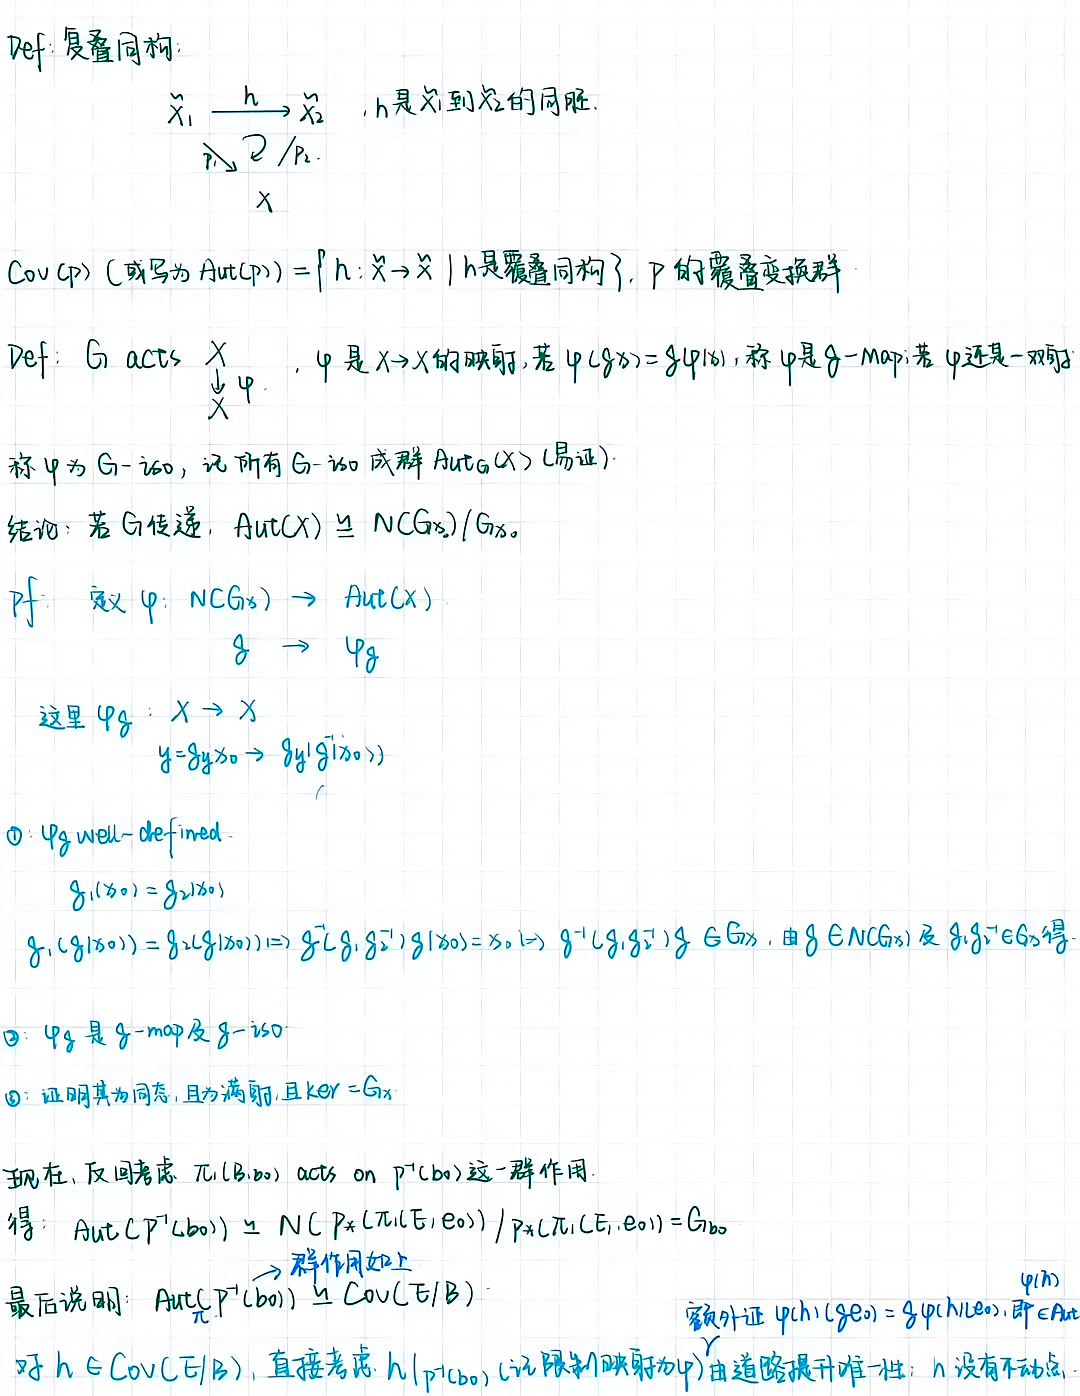 Def: 复叠同构:
X̃₁ —h→ X̃₂ , h是X̃₁到X̃₂的同胚.
p₁ ↘ ↻ / p₂.
X
Cov(p) (或写为 Aut(p)) = { h: X̃→X̃ | h是覆叠同构 }, p 的覆叠变换群
Def: G acts X , φ 是 X→X 的映射, 若 φ(gx)=gφ(x), 称 φ是 g-map; 若 φ还是一双射
↓φ.
X
称 φ 为 G-iso, 记所有 G-iso 成群 Aut_G(X) (易证).
结论: 若 G传递, Aut(X) ≌ N(Gx₀)/Gx₀
pf: 定义 φ: N(Gx) → Aut(X)
g → φg
这里 φg : X → X
y=g_y x₀ → g_y(g⁻¹(x₀))
①: φg well-defined.
g₁(x₀) = g₂(x₀)
g₁(g(x₀)) = g₂(g(x₀)) (=) g⁻¹(g₁g₂⁻¹)g(x₀) = x₀ (=) g⁻¹(g₁g₂⁻¹)g ∈ Gx, 由 g ∈ N(Gx) 及 g₁g₂⁻¹ ∈ Gx 得.
②: φg 是 g-map 及 g-iso
③: 证明其为同态, 且为满射, 且 ker = Gx
现在, 反回考虑 π₁(B,b₀) acts on p⁻¹(b₀) 这一群作用.
得: Aut(p⁻¹(b₀)) ≌ N(p*(π₁(E,e₀))/p*(π₁(E,e₀)) = G_b₀
→ 群作用如上
最后说明: Aut_π(p⁻¹(b₀)) ≌ Cov(E/B)
φ(h)
额外证 φ(h)(ge₀) = gφ(h)(e₀), 即 ∈ Aut
对 h ∈ Cov(E/B), 直接考虑 h|p⁻¹(b₀) (记限制映射为φ) 由道路提升唯一性: h 没有不动点,